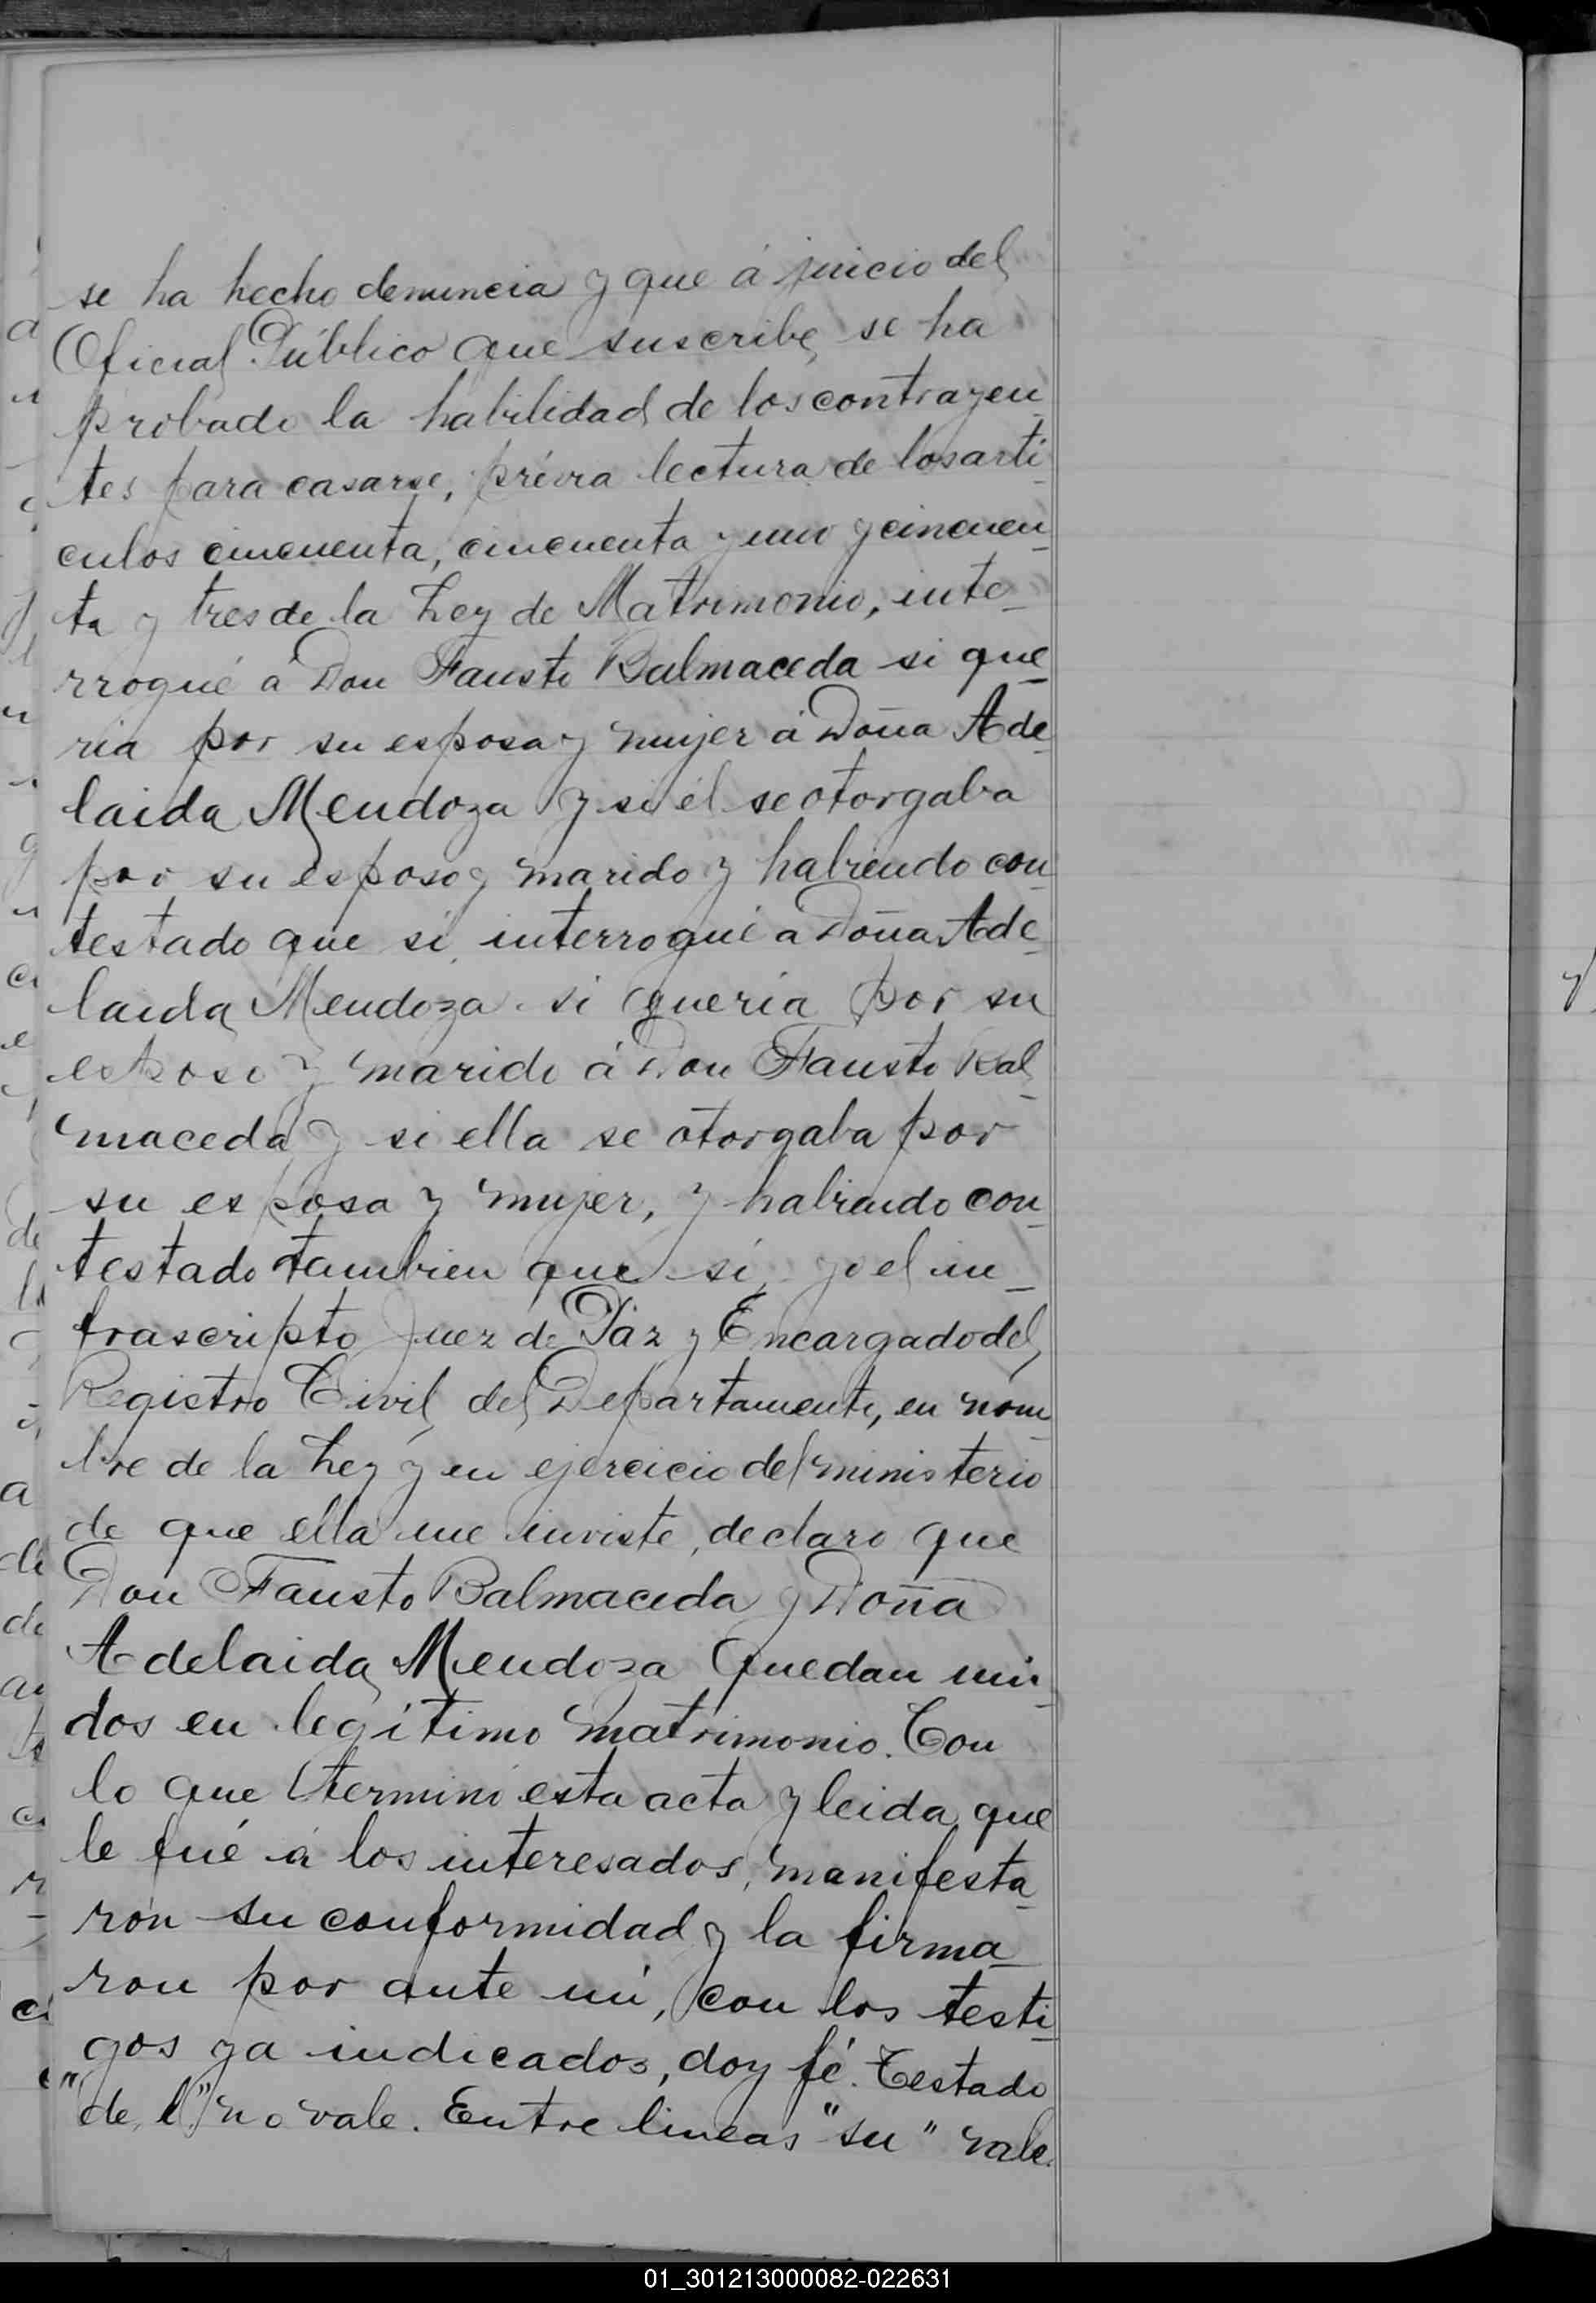 se ha hecho denuncia y que á juicio del
Oficial Público que suscribe, se ha
probado la habilidad de los contrayen_
tes para casarse, prévia lectura de los arti_
culos cincuenta, cincuenta y uno y cincuen_
ta y tres de la Ley de Matrimonio, inte_
rrogué á Don Fausto Balmaceda si que_
ria por su esposa y mujer á Doña Ade_
laida Mendoza y si él se otorgaba
por su esposo y marido y habiendo con_
testado que si, interrogué a Doña Ade_
laida Mendoza si queria por su
esposo y marido á Don Fausto Bal_
maceda y si ella se otorgaba por
su esposa y mujer, y habiendo con_
testado tambien que si, yo el in_
frascripto Juez de Páz y Encargado del
Registro Civil del Departamento, en nom_
bre de la Ley y en ejercicio del ministerio
de que ella me inviste, declaro que
Don Fausto Balmaceda y Doña
Adelaida Mendoza quedan uni_
dos en legítimo matrimonio. Con
lo que terminó esta acta y leida que
le fué á los interesados, manifesta_
ron su conformidad y la firma_
ron por ante mi, con los testi_
gos ya indicados, doy fé. Testado
"de l" no vale. Entre lineas "su" vale.
01_301213000082-022631